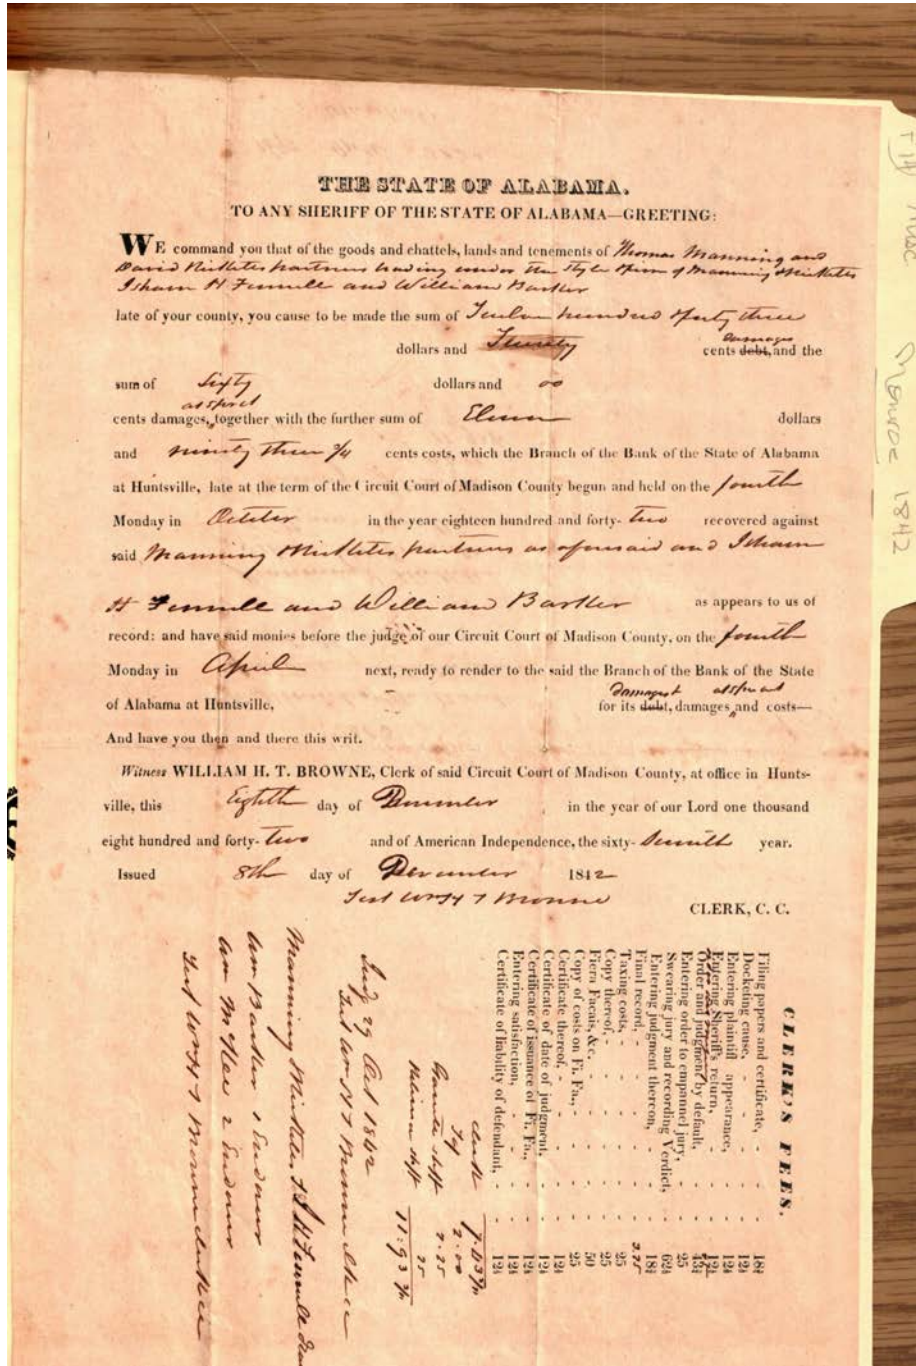 THE STATE OF ALABAMA.
TO ANY SHERIFF OF THE STATE OF ALABAMA—GREETING:
WE command you that of the goods and chattels, lands and tenements of Thomas Manning and
David partners trading under the style & firm of Manning &
Isham H Fennell and William Barker
late of your county, you cause to be made the sum of hundred & forty three
damages
dollars and cents debt, and the
sum of Sixty dollars and 00
cents damages, together with the further sum of Eleven dollars
and ninety three 3/4 cents costs, which the Branch of the Bank of the State of Alabama
at Huntsville, late at the term of the Circuit Court of Madison County begun and held on the fourth
Monday in October in the year eighteen hundred and forty- two recovered against
said Manning partners as aforesaid and Isham
H Fennell and William Barker as appears to us of
record: and have said monies before the judge of our Circuit Court of Madison County, on the fourth
Monday in April next, ready to render to the said the Branch of the Bank of the State
damages
of Alabama at Huntsville, for its debt, damages, and costs—
And have you then and there this writ.
Witness WILLIAM H. T. BROWNE, Clerk of said Circuit Court of Madison County, at office in Hunts-
ville, this Eighth day of December in the year of our Lord one thousand
eight hundred and forty- two and of American Independence, the sixty- seventh year.
Issued 8th day of December 1842
Test Wm H T Browne
CLERK, C. C.
CLERK'S FEES.
Filing papers and certificate, - - - 18¾
Docketing cause, - - - 12½
Entering plaintiff appearance, - - - 12½
Entering Sheriff's return, - - - 12½
Order and judgment by default,
Entering order to empannel jury, - - - 25
Swearing jury and recording Verdict, - - - 62½
Entering judgment thereon, - - - 18¾
Final record, - - - 3.75
Taxing costs, - - - 25
Copy thereof, - - - 25
Fiera Facais, &c. - - - 50
Copy of costs on Fi. Fa., - - - 25
Certificate thereof, - - - 12½
Certificate of date of judgment, - - - 12½
Certificate of issuance of Fi. Fa., - - - 12½
Entering satisfaction, - - - 12½
Certificate of liability of defendant, - - - 12½
Clerk
2.00
Shff
Shff 75
11.93 3/4
Judg 29 Oct 1842
Test Wm H T Browne Clk
Manning
Wm Barker 1 Endorser
Wm 2 Endorser
Test Wm H T Browne clerk
Monroe 1842